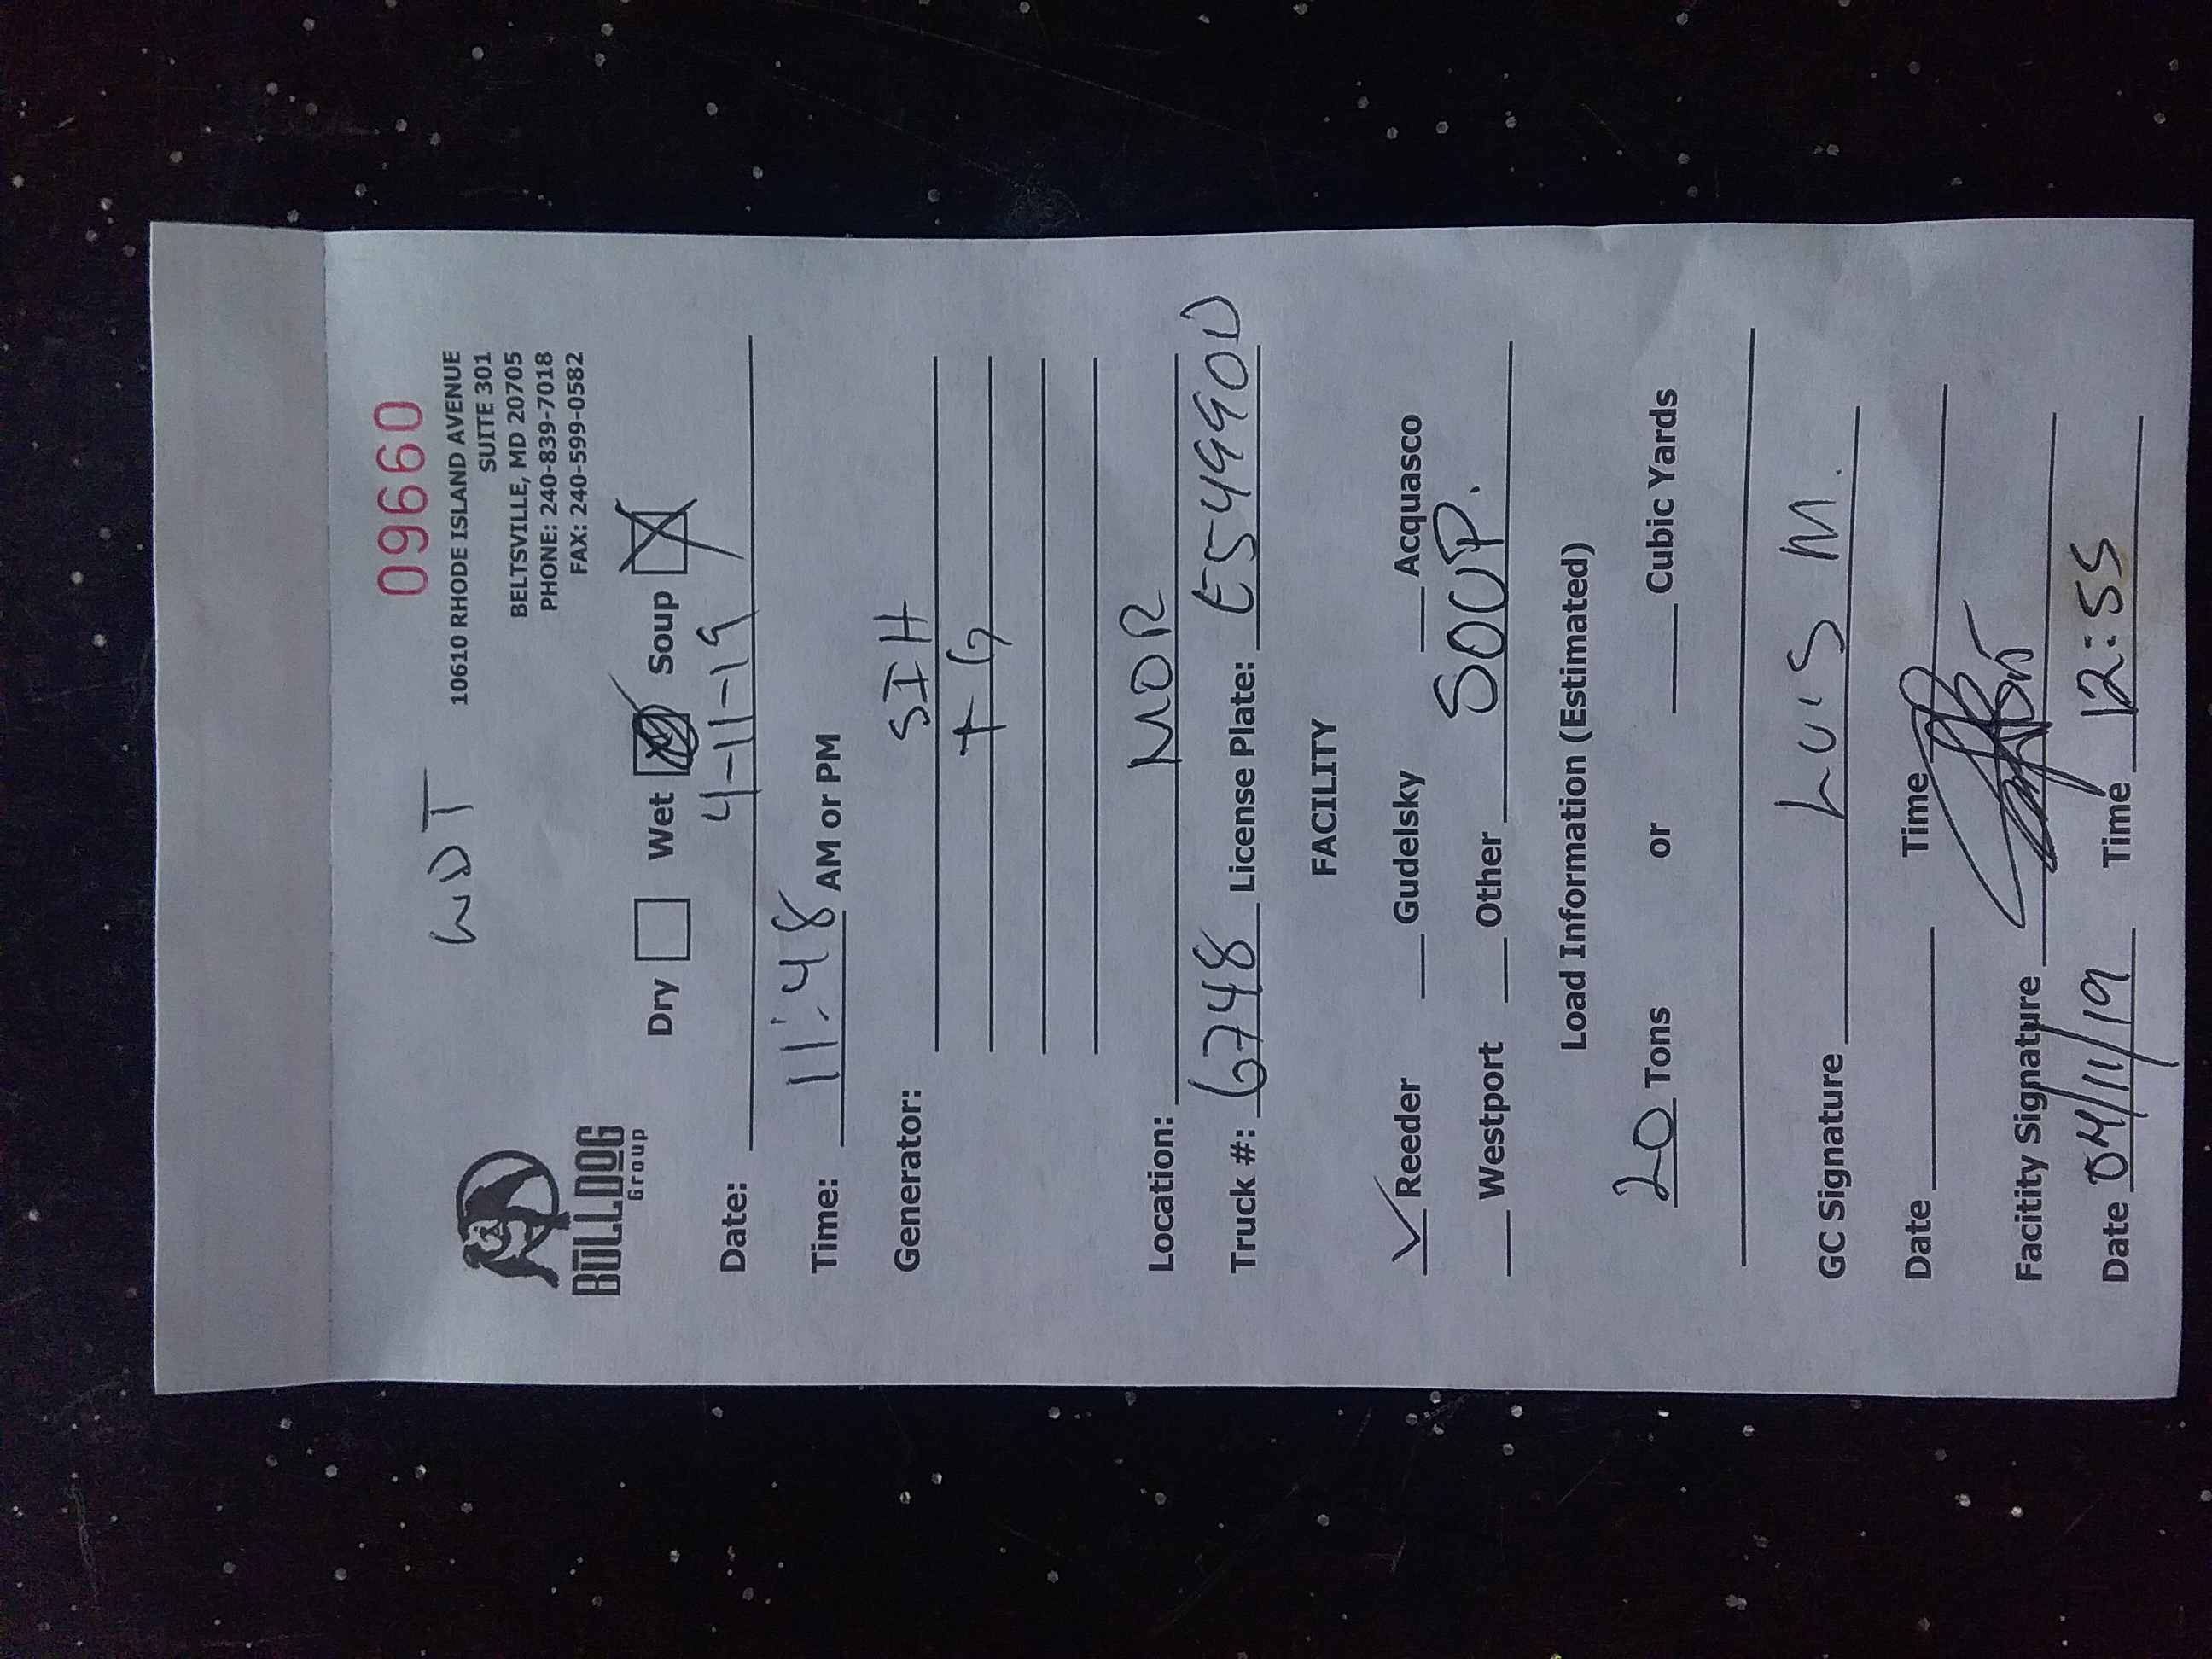 09660
WDT
10610 RHODE ISLAND AVENUE
SUITE 301
BELTSVILLE, MD 20705
PHONE: 240-839-7018
FAX: 240-599-0582
BULLDOG
Group
Dry Wet Soup
Date: 4-11-19
Time: 11:48 AM or PM
Generator: SIH
+ G
Location: MOR
Truck #: 6748 License Plate: E54990D
FACILITY
Reeder Gudelsky Acquasco
Westport Other SOUP.
Load Information (Estimated)
20 Tons or Cubic Yards
GC Signature LUIS M.
Date Time
Facitity Signature
Date 04/11/19 Time 12:55